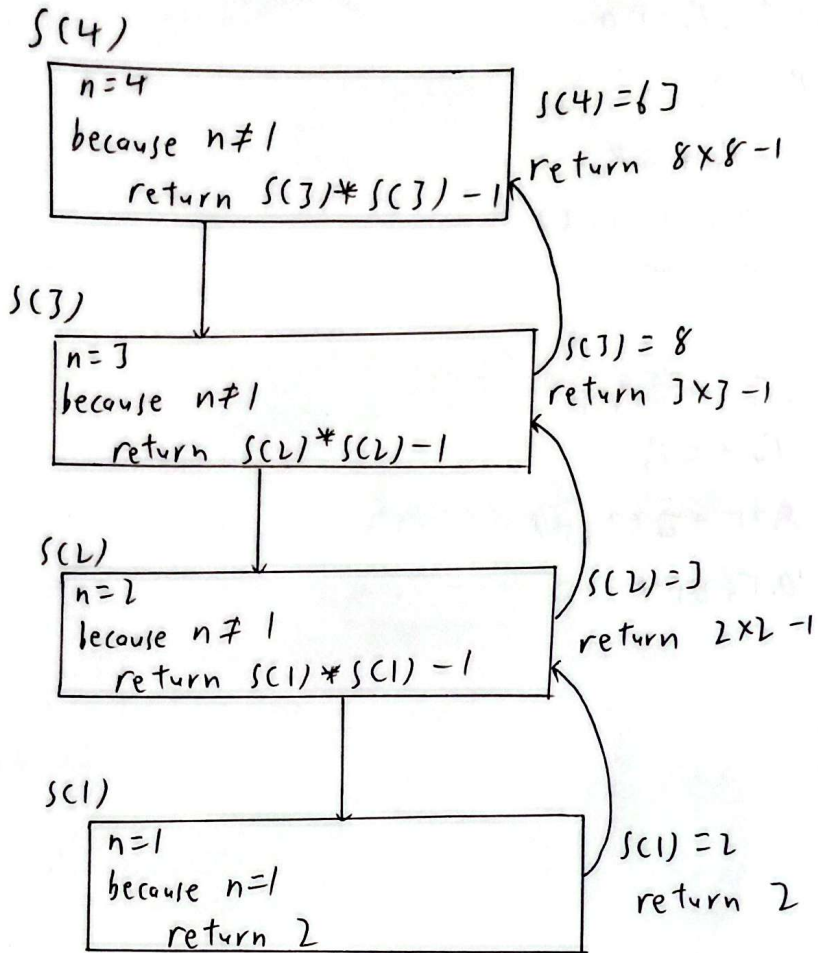 S(4)
n=4
because n≠1
return S(3)*S(3)-1
S(4)=63
return 8×8-1
S(3)
n=3
because n≠1
return S(2)*S(2)-1
S(3)=8
return 3×3-1
S(2)
n=2
because n≠1
return S(1)*S(1)-1
S(2)=3
return 2×2-1
S(1)
n=1
because n=1
return 2
S(1)=2
return 2